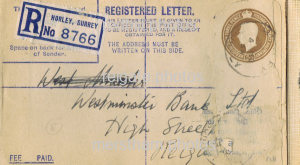 REGISTERED LETTER.
THIS LETTER MUST BE GIVEN TO
AN OFFICER OF THE POST OFFICE
TO BE REGISTERED, AND A RECEIPT
OBTAINED FOR IT.
THE ADDRESS MUST BE
WRITTEN ON THIS SIDE.
HORLEY, SURREY
R No 8766
Space on back for
of Sender.
reigate
West
Westminster Bank Ltd
High Street
Reiga
FEE PAID.